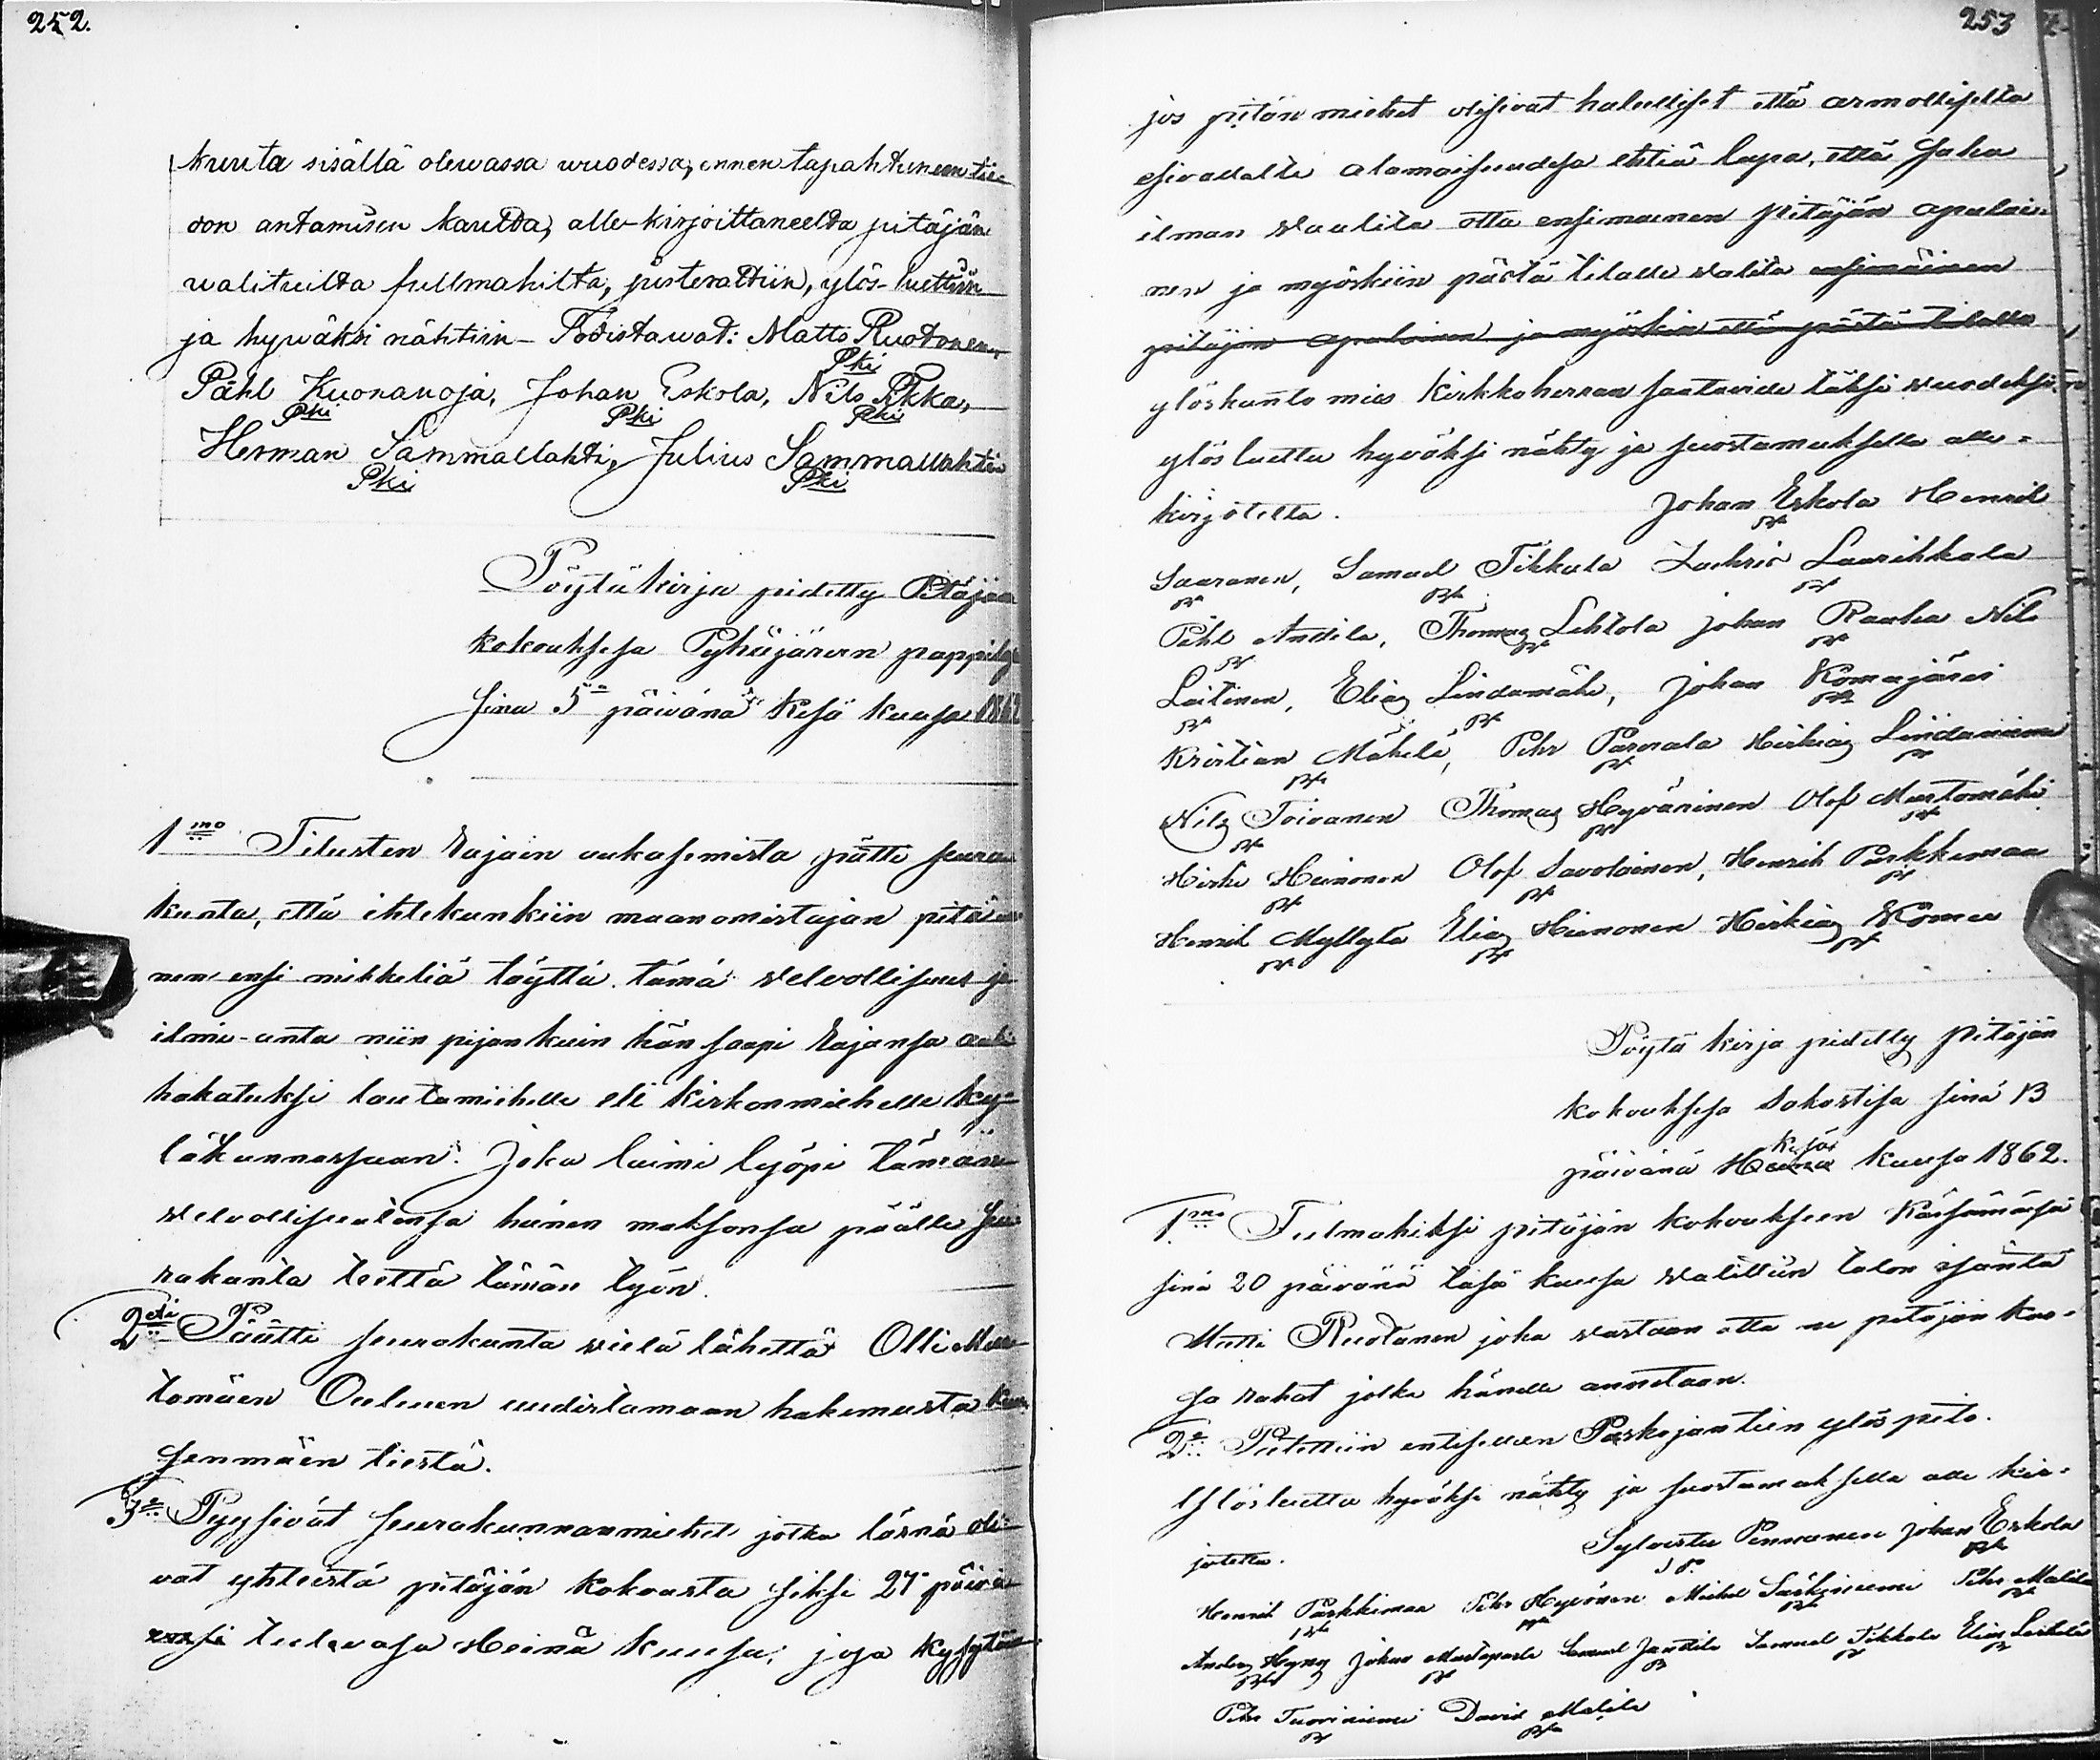 252.
kuuta sisällä olewassa wuodessa, ennen tapahtuneen tie-
don antamisen kautta, alle-kirjoittaneelta pitäjän
walituilta fullmahilta, justerattiin, ylös-luettiin
ja hywäksi nähtiin - Todistawat: Matts Ruotonen,
Pki
Påhl Kuonanoja, Johan Eskola, Nils Tikka,
Pki Pki Pki
Herman Sammallahti, Julius Sammallahti
Pki Pki
Pöytäkirja pidetty Pitäjän
kokouksesa Pyhäjärven pappila
sina 5nä päivänä Kesä kuusa 1862
1mo Tilusten Rajain aukasemista pätti seura
kunta, että ihtekunkiin maanomistajan pitä
nen ensi mikkeliä täyttä tämä velvollisuus ja
ilmi-anta niin pijan kuin hän saapi Rajansa auki
hakatuksi lautamiehelle eli kirkonmiehelle ky-
läkunnassaan. Joka laimi lyöpi tämän
velvollisuutensa hänen maksonsa päälle seu
rakunta teettä tämän työn.
2di Päätti seurakunta vielä lähettä Olli Mus
tomäen Ouluun uudistamaan hakemusta
senmäen tiestä.
3e Pyysivät seurakunnanmiehet jotka läsnä oli
vat yhteistä pitäjän kokousta siksi 27 päivä
si tulevasa Heinä kuusa; josa kysytän
253
jos pitän miehet olisivat halulliset että armolliselta
esivallalta alamaisuudesa ehtiä lupa, että saha
ilman vaalita otta ensimäinen pitäjän apulai-
nen ja myöskiin pästä tilalle valita ensimäinen
pitäjän apulainen ja myöskin että pästä tilalle
ylöskanto mies Kirkkoherran saatavide täksi vuodeksi
ylösluettu hyväksi nähty ja suostumuksella alle-
kirjotettu. Johan Eskola Henrik
Saaranen, Samuel Tikkala Zachris Laarikkala
Pehr Anttila, Thomas Lehtola Johan Raaka Nils
Laitinen, Elias Lindamäki, Johan Komujärvi
Kristian Mäkelä, Pehr Parviala Herkias Liidaniemi
Nils Toivanen Thomas Hyvärinen Olof Mustomäki
Heikki Heinonen Olof Savolainen, Henrik Parkkimaa
Henrik Myllylä Elias Hienonen Herkias Komu
Pöytä kirja pidetty pitäjän
kokouksesa Sakastisa sinä 13
kesä
päivänä Heinä kuusa 1862.
1mo Fulmahiksi pitäjän kokoukseen Kärsämäesä
sinä 20 päivänä täsä kuusa valittiin talon isäntä
Matti Ruotanen joka vastaan otta ne pitäjän kas-
sa rahat jotka hänelle annetaan.
2e Pidettiin entisellen Paskojantien ylös pito.
Ylösluettu hyväksi nähty ja suostumuksella alle kir-
jotettu. Sylvester Pennanen Johan Eskola
Henrik Parkkimaa Pehr Hyvönen Michel Särkiniemi Pehr Malila
Anders Hyny Johan Mustaparta Samuel Janttila Samuel Tikkala Elias Leskelä
Pehr Tuoriniemi David Malila